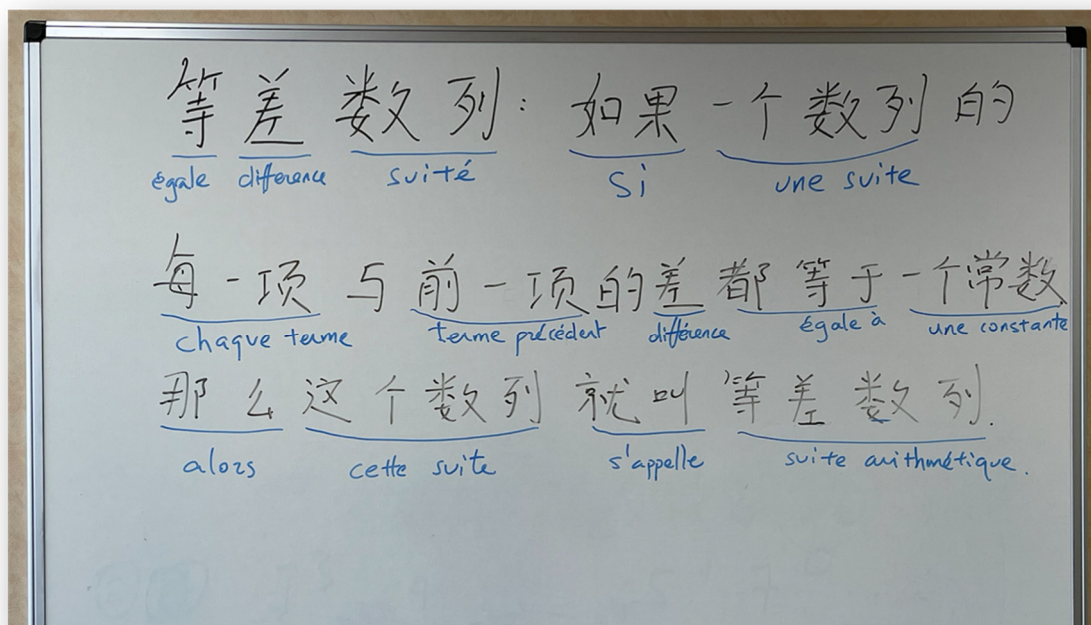 等差数列：如果一个数列的
égale différence suité si une suite
每一项与前一项的差都等于一个常数
chaque terme terme précédent différence égale à une constante
那么这个数列就叫等差数列.
alors cette suite s'appelle suite arithmétique.